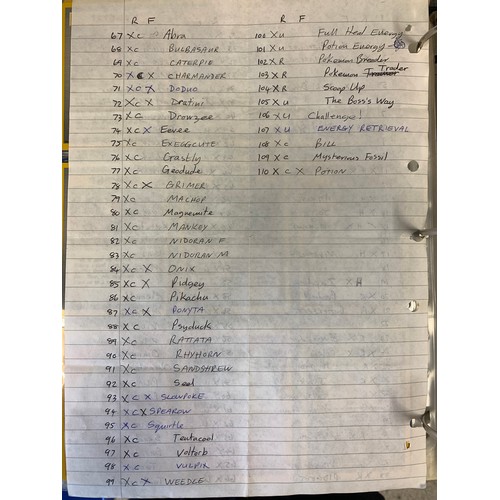 R F
67 X C Abra
68 X C BULBASAUR
69 X C CATERPIE
70 X C X CHARMANDER
71 X C X DODUO
72 X C X Dratini
73 X C Drowzee
74 X C X Eevee
75 X C EXEGGCUTE
76 X C Gastly
77 X C Geodude
78 X C X GRIMER
79 X C MACHOP
80 X C Magnemite
81 X C MANKEY
82 X C NIDORAN F
83 X C NIDORAN M
84 X C X ONIX
85 X C X Pidgey
86 X C Pikachu
87 X C X PONYTA
88 X C Psyduck
89 X C RATTATA
90 X C RHYHORN
91 X C SANDSHREW
92 X C Seel
93 X C X SLOWPOKE
94 X C X SPEAROW
95 X C Squirtle
96 X C Tentacool
97 X C Voltorb
98 X C VULPIX
99 X C X WEEDLE
R F
100 X U Full Heal Energy
101 X U Potion Energy
102 X R Pokemon Breeder
103 X R Pokemon Trader
104 X R Scoop Up
105 X U The Boss's Way
106 X U Challenge!
107 X U ENERGY RETRIEVAL
108 X C BILL
109 X C Mysterious Fossil
110 X C X POTION